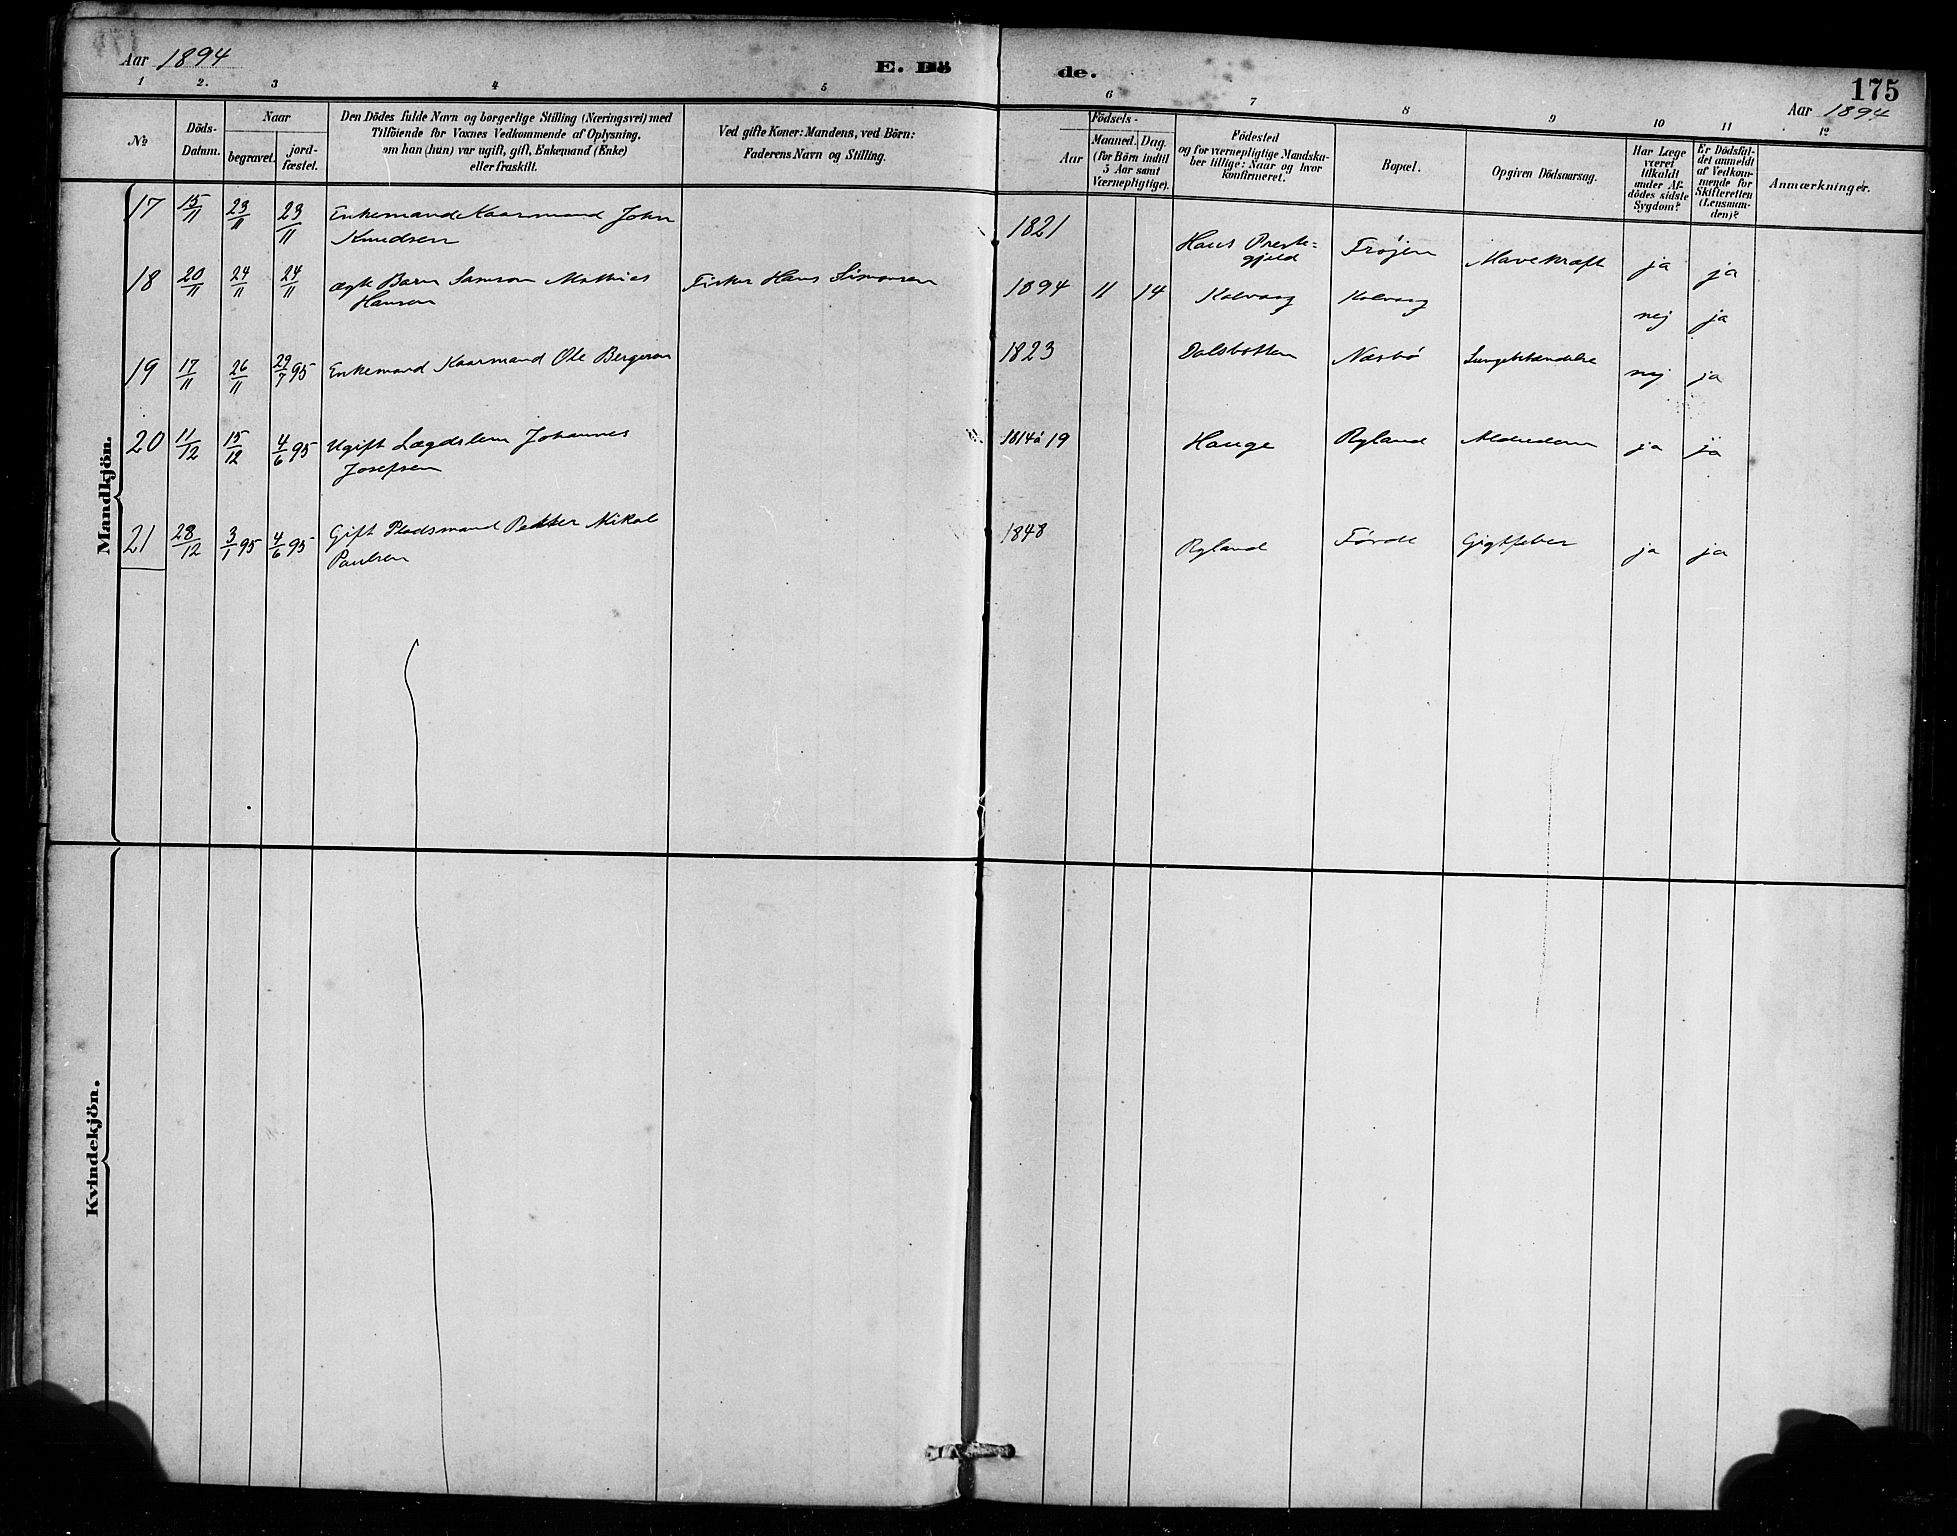 Aar 1894
E. Dö
de.
175
Aar 1894
1
2.
3
4
5
6
7
8
9
10
11
12
No
Döds-
Datum.
Naar
begravet.
jord-
fæstet.
Den Dödes fulde Navn og borgerlige Stilling (Næringsvei) med
Tilföiende for Voxnes Vedkommende af Oplysning,
om han (hun) var ugift, gift, Enkemand (Enke)
eller fraskilt.
Ved gifte Koner: Mandens, ved Börn:
Faderens Navn og Stilling.
Födsels-
Aar
Maaned. Dag.
(for Börn indtil
5 Aar samt
Værnepligtige).
Födested
og for værnepligtige Mandska-
ber tillige: Naar og hvor
konfirmeret.
Bopæl.
Opgiven Dödsaarsag.
Har Læge
været
tilkaldt
under Af-
dödes sidste
Sygdom?
Er Dödsfal-
det anmeldt
af Vedkom-
mende for
Skifteretten
(Lensman-
den)?
Anmærkninger.
Mandkjön.
17 15/11 23/11 23/11 Enkemand Kaarmand John
Knudsen
1821 Haus Preste=
gjeld Frøjen Mavekræft ja ja
18 20/11 24/11 24/11 ægte Barn Samson Mathias
Hansen
Fisker Hans Simonsen 1894 11 14 Kalvaag Kalvaag nej ja
19 17/11 26/11 29/7 95 Enkemand Kaarmand Ole Bergeson
1823 Dalsbotten Næsbø Lungebetændelse nej ja
20 11/12 15/12 4/6 95 Ugift Lægdslem Johannes
Josefsen
1814 à 19 Hauge Ryland Alderdom ja ja
21 28/12 3/1 95 4/6 95 Gift Pladsmand Petter Nikolai
Paulsen
1848 Ryland Førde Gigtfeber ja ja
Kvindekjön.